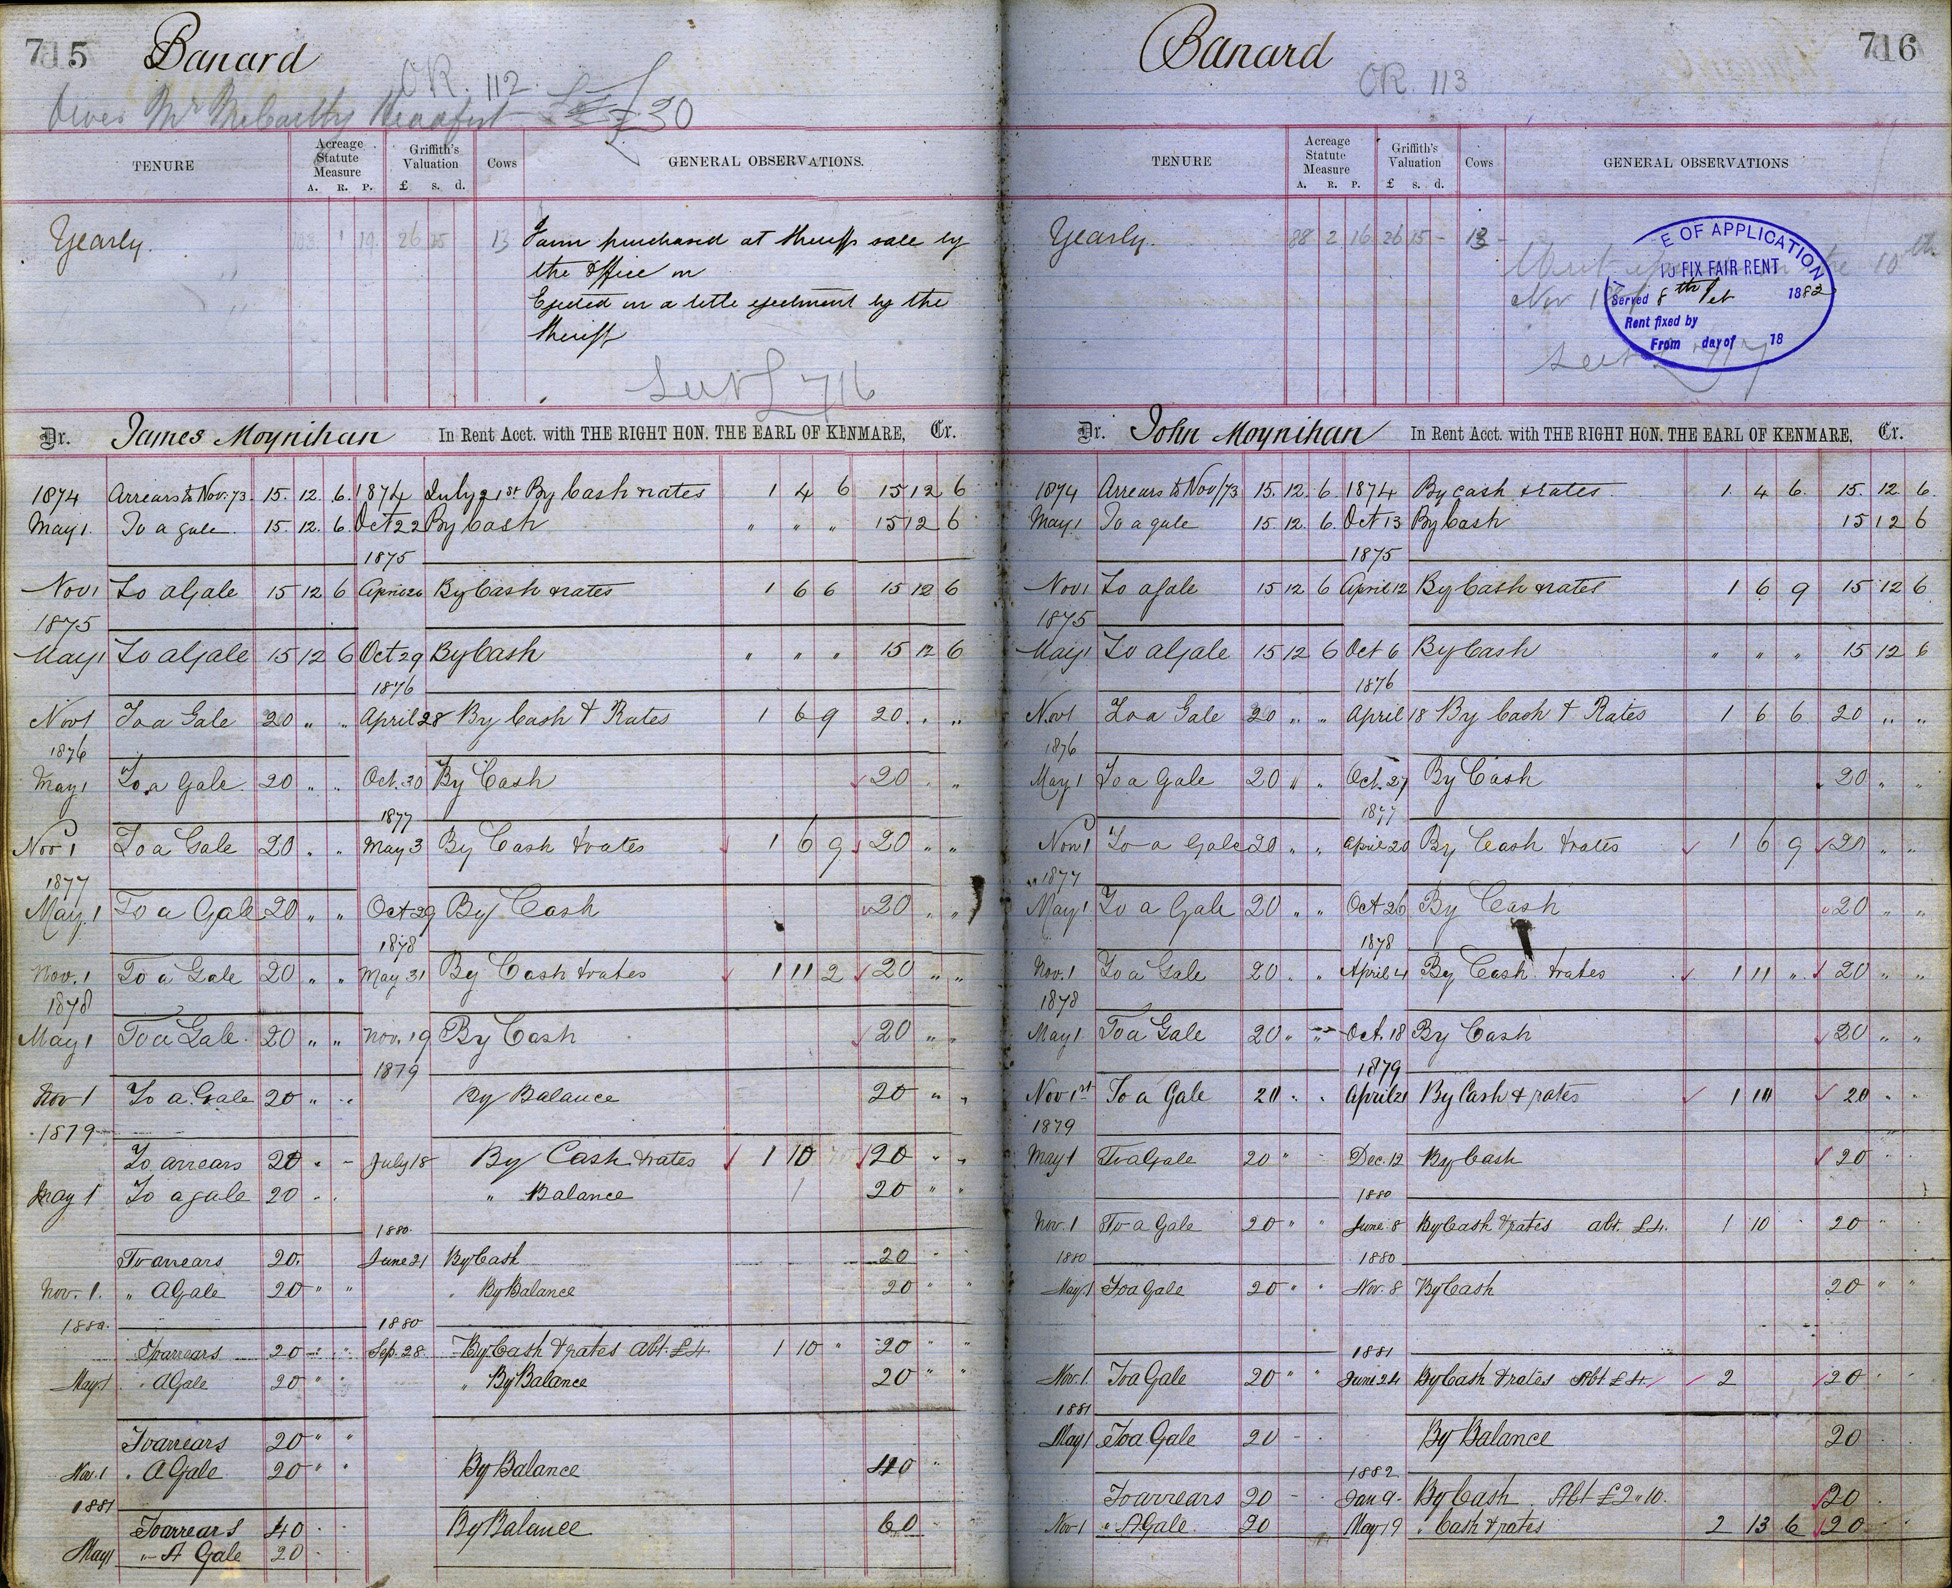 715 Banard
OR. 112.
Owes Mr McCarthy Headfort £30
TENURE
Acreage Statute Measure
A. R. P.
Griffith's Valuation
£ s. d.
Cows
GENERAL OBSERVATIONS.
Yearly. 1 19 26 15 13 Farm purchased at Sheriffs sale by
the Office on
Ejected on a title ejectment by the
Sheriff
716
Dr. James Moynihan In Rent Acct. with THE RIGHT HON. THE EARL OF KENMARE, Cr.
1874 Arrears to Nov. 73. 15. 12. 6. 1874 July 21st By Cash & rates 1 4 6 15 12 6
May 1. To a gale 15. 12. 6. Oct 22 By Cash " " " 15 12 6
1875
Nov 1 To a Gale 15 12 6 April 20 By Cash & rates 1 6 6 15 12 6
1875
May 1 To a Gale 15 12 6 Oct 29 By Cash " " " 15 12 6
1876
Nov 1 To a Gale 20 " " April 28 By Cash & Rates 1 6 9 20 " "
1876
May 1 To a Gale 20 " " Oct. 30 By Cash 20 " "
1877
Nov 1 To a Gale 20 " " May 3 By Cash & rates 1 6 9 20 " "
1877
May 1 To a Gale 20 " " Oct 29 By Cash 20 " "
1878
Nov. 1 To a Gale 20 " " May 31 By Cash & rates 1 11 2 20 " "
1878
May 1 To a Gale 20 " " Nov. 19 By Cash 20 " "
1879
Nov 1 To a Gale 20 " " By Balance 20 " "
1879
To arrears 20 " - July 18 By Cash & rates 1 10 20 " "
May 1 To a gale 20 " " " Balance 20 " "
1880
To arrears 20. June 21 By Cash 20 " "
Nov. 1. " A Gale 20 " " " By Balance 20 " "
1880. 1880
To arrears 20 " " Sep. 28 By Cash & rates Abt. £4 1 10 " 20 " "
May 1 " A Gale 20 " " " By Balance 20 " "
To arrears 20 " "
Nov. 1 " A Gale 20 " " By Balance 40 "
1881
To arrears 40 By Balance 60
May 1 " A Gale 20
Banard 716
OR. 113
TENURE
Acreage Statute Measure
A. R. P.
Griffith's Valuation
£ s. d.
Cows
GENERAL OBSERVATIONS
Yearly. 88 2 16 26 15 - 13 10th
Nov
E OF APPLICATION
TO FIX FAIR RENT
Served 8th 1882
Rent fixed by
From day of 18
717
Dr. John Moynihan In Rent Acct. with THE RIGHT HON. THE EARL OF KENMARE, Cr.
1874 Arrears to Nov/73 15. 12. 6. 1874 By cash & rates 1. 4 6. 15. 12. 6.
May 1. To a gale 15 12. 6. Oct 13 By Cash 15 12 6
1875
Nov 1 To a gale 15 12 6 April 12 By Cash & rates 1 6 9 15 12 6
1875
May 1 To a Gale 15 12 6 Oct 6 By Cash " " " 15 12 6
1876
Nov 1 To a Gale 20 " " April 18 By Cash & Rates 1 6 6 20 " "
1876
May 1 To a Gale 20 " " Oct. 27 By Cash 20 " "
1877
Nov 1 To a Gale 20 " " April 20 By Cash & rates 1 6 9 20 " "
1877
May 1 To a Gale 20 " " Oct 26 By Cash 20 " "
1878
Nov. 1 To a Gale 20 " " April 4 By Cash & rates 1 11 " 20 " "
1878
May 1 To a Gale 20 " " Oct. 18 By Cash 20 " "
1879
Nov 1st To a Gale 20 " " April 21 By Cash & rates 1 10 20 " "
1879
May 1 To a Gale 20 " - Dec. 12 By Cash 20 " "
1880
Nov. 1 To a Gale 20 " " June 8 By Cash & rates abt. £4. 1 10 20 "
1880 1880
May 1 To a Gale 20 " " Nov. 8 By Cash 20 " "
1881
Nov. 1 To a Gale 20 " " June 24 By Cash & rates Abt. £4. 2 20
1881
May 1 To a Gale 20 - By Balance 20
1882
To arrears 20 - Jan 9 - By Cash Abt £2 " 10. 20
Nov. 1 " A Gale 20 May 19 " Cash & rates 2 13 6 20